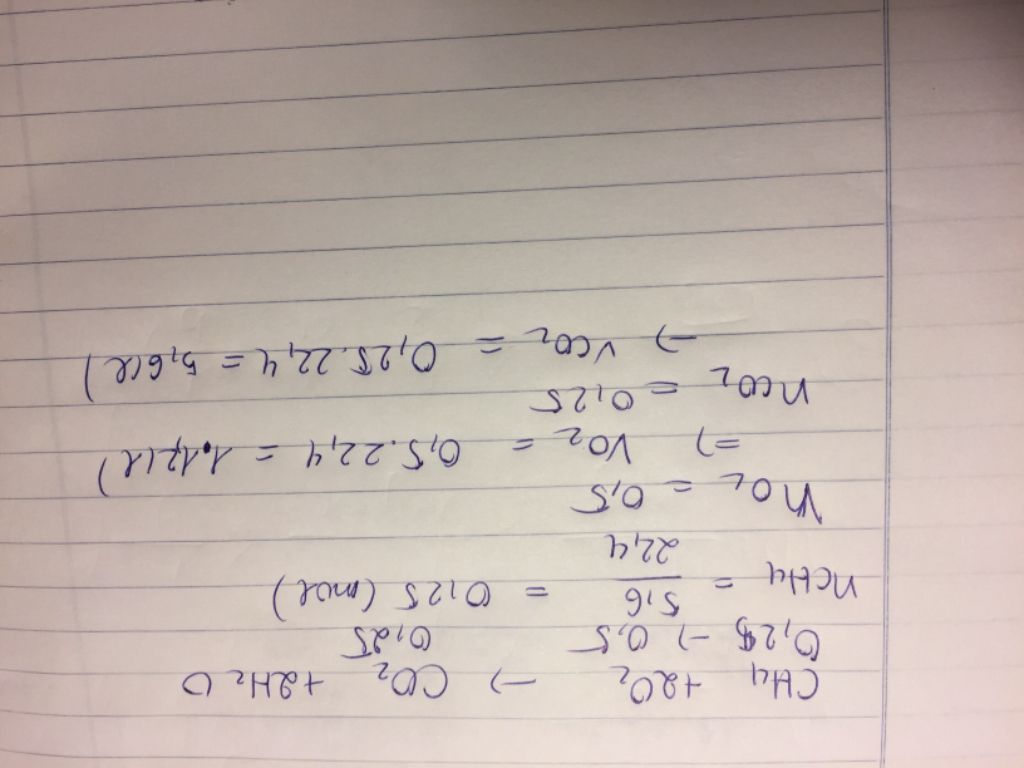 CH4 + 2O2 → CO2 + 2H2O
0,25 → 0,5 0,25
nCH4 = 5,6 / 22,4 = 0,25 (mol)
nO2 = 0,5
=> VO2 = 0,5.22,4 = 11,2(l)
nCO2 = 0,25
→ VCO2 = 0,25.22,4 = 5,6(l)